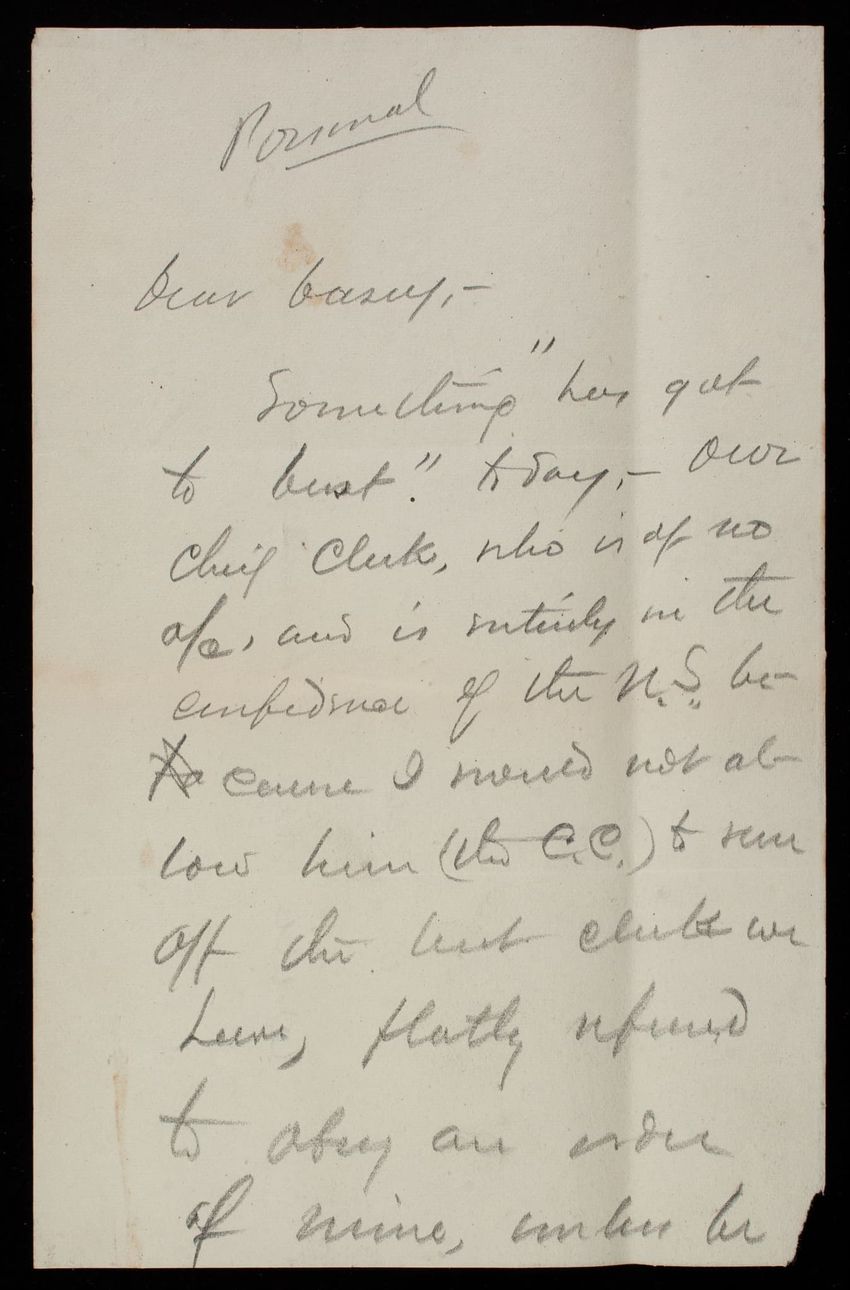 Personal
Dear Casey,-
Something "has got
to bust". today,- Our
chief Clerk, who is of no
a/c, and is entirely in the
confidence of the N.S. be-
cause I would not al-
low him (the C.C.) to run
off the best clerk we
have, flatly refused
to obey an order
of mine, unless he